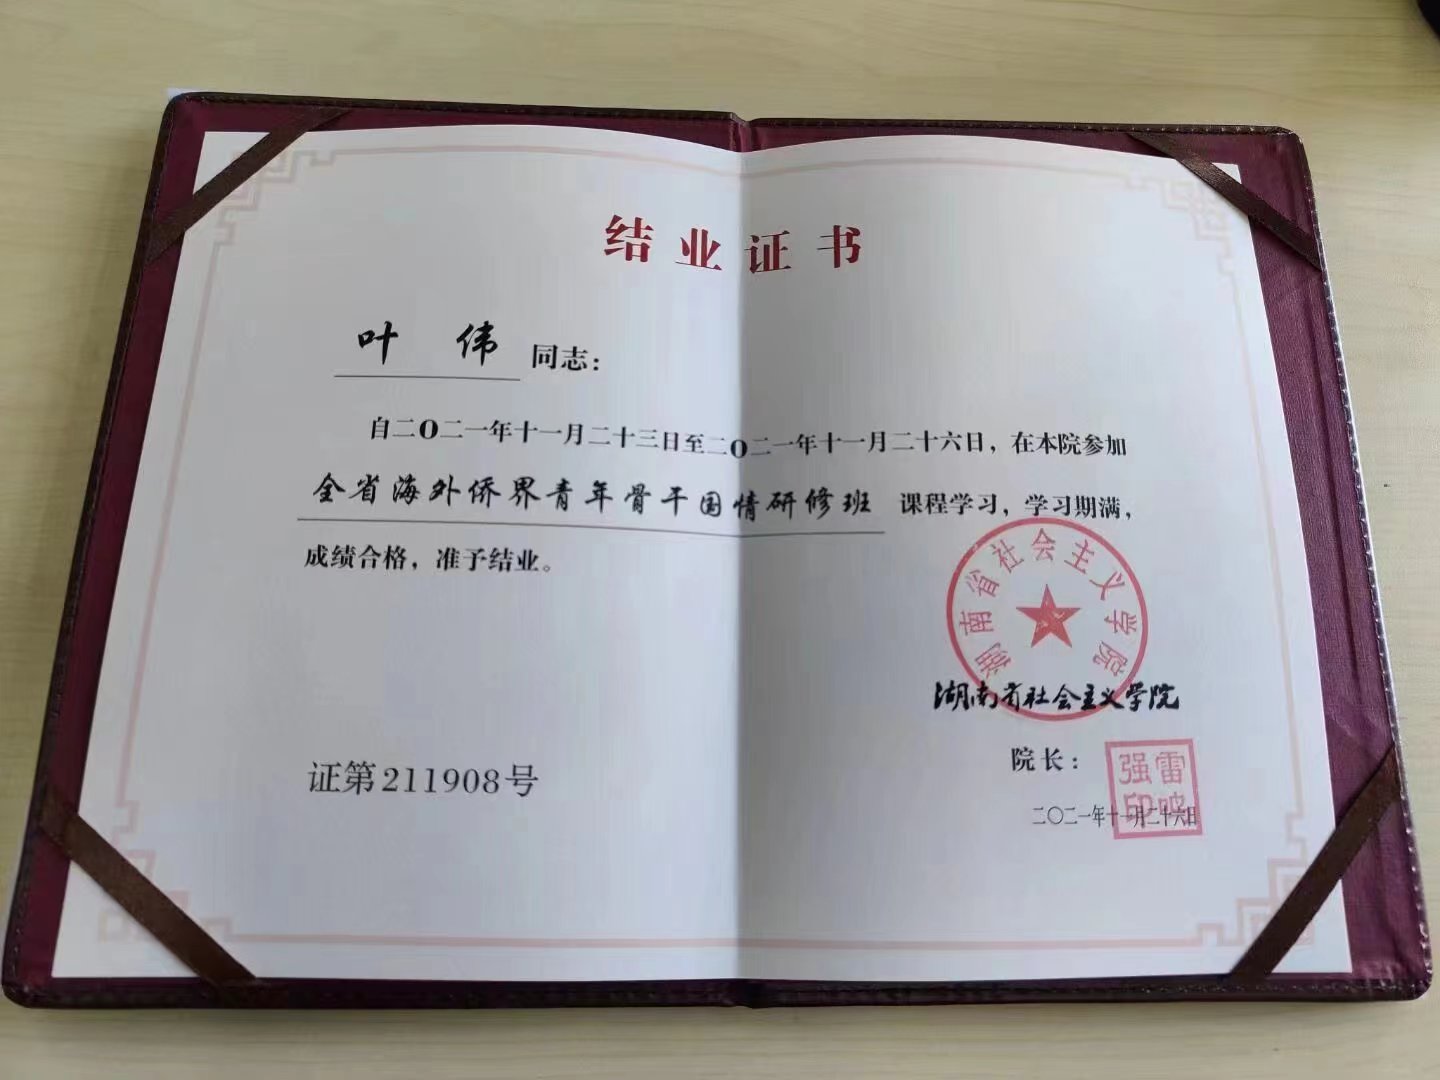 结业证书
叶 伟 同志：
自二〇二一年十一月二十三日至二〇二一年十一月二十六日，在本院参加
全省海外侨界青年骨干国情研修班 课程学习，学习期满，
成绩合格，准予结业。
湖南省社会主义学院
湖南省社会主义学院
院长：
雷鸣强印
二〇二一年十一月二十六日
证第211908号